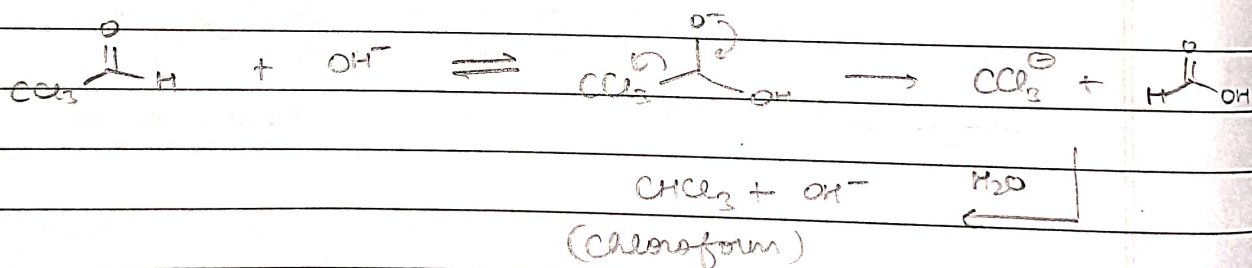 O O⁻ O
CCl₃ H + OH⁻ ⇌ CCl₃ OH → CCl₃⊖ + H OH
CHCl₃ + OH⁻ H₂O
(Chloroform)